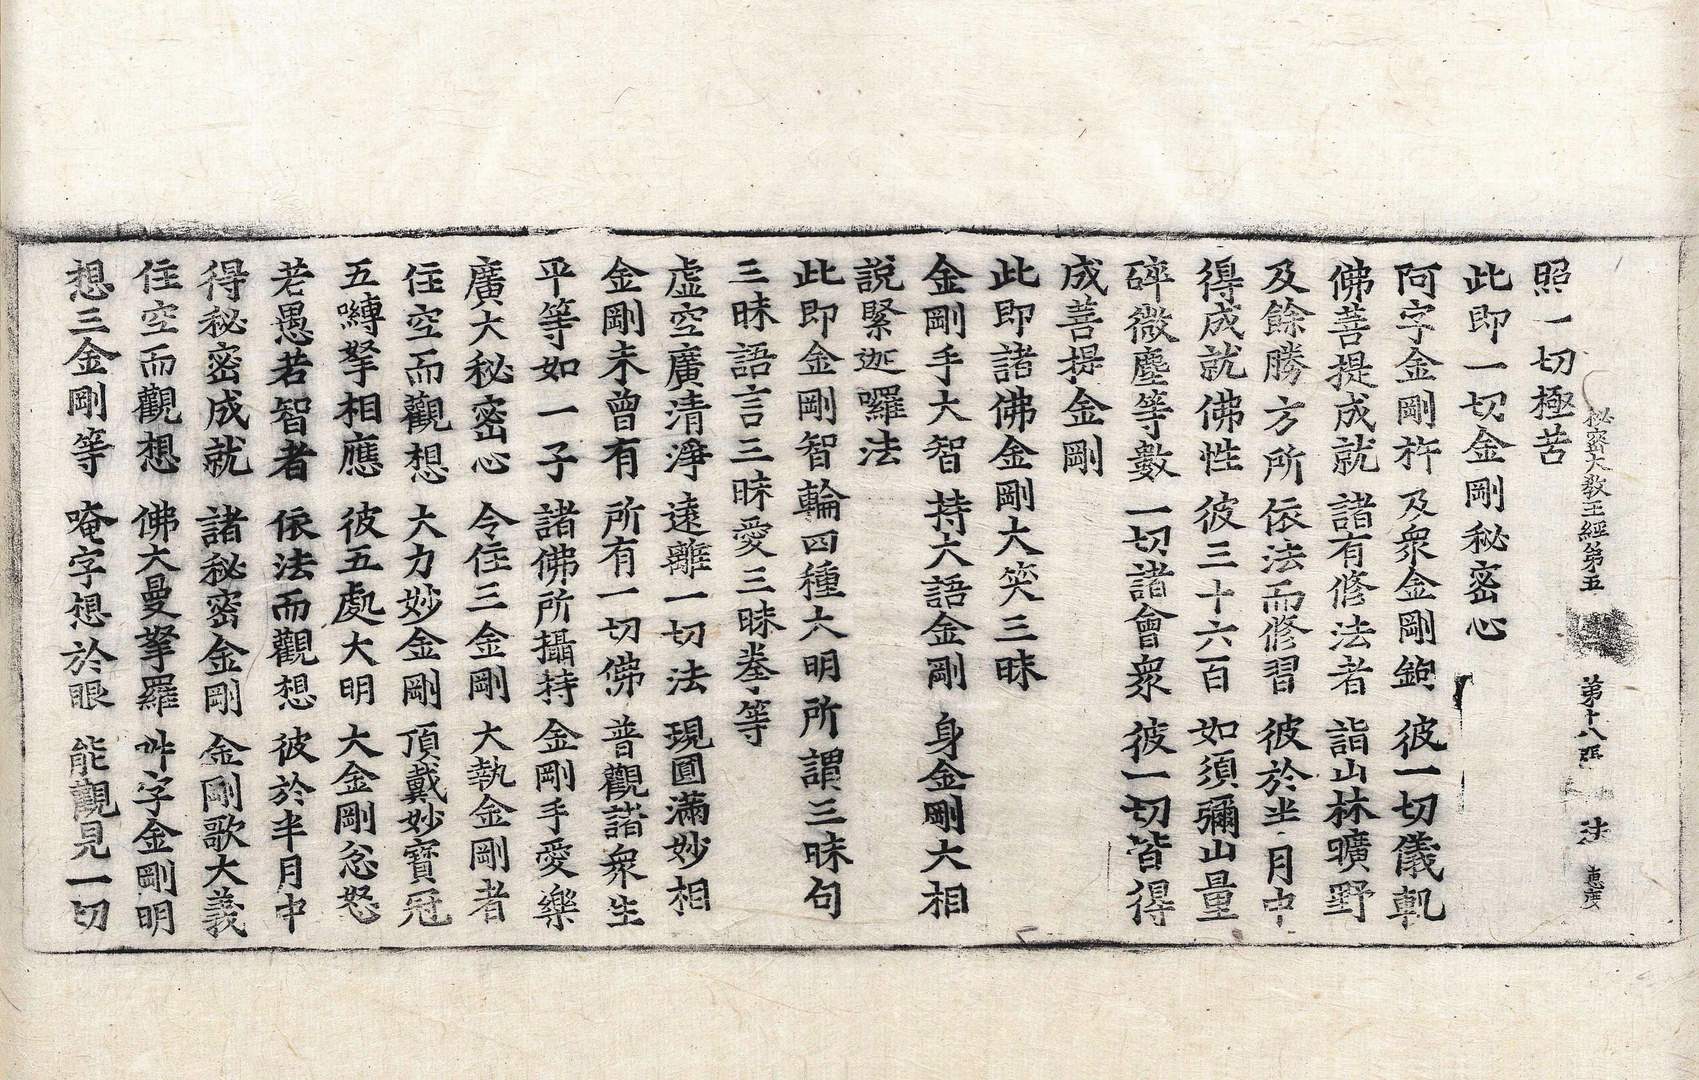 秘密大敎王經第五 第十八張 法 惠度
照一切極苦
此即一切金剛秘密心
阿字金剛杵 及眾金剛鉤 彼一切儀軌
佛菩提成就 諸有修法者 詣山林曠野
及餘勝方所 依法而修習 彼於半月中
得成就佛性 彼三十六百 如須彌山量
碎微塵等數 一切諸會眾 彼一切皆得
成菩提金剛
此即諸佛金剛大笑三昧
金剛手大智 持大語金剛 身金剛大相
說緊迦囉法
此即金剛智輪四種大明所謂三昧句
三昧語言三昧愛三昧拳等
虛空廣清淨 遠離一切法 現圓滿妙相
金剛未曾有 所有一切佛 普觀諸眾生
平等如一子 諸佛所攝持 金剛手愛樂
廣大秘密心 令住三金剛 大執金剛者
住空而觀想 大力妙金剛 頂戴妙寶冠
五嚩拏相應 彼五處大明 大金剛忿怒
若愚若智者 依法而觀想 彼於半月中
得秘密成就 諸秘密金剛 金剛歌大義
住空而觀想 佛大曼拏羅 吽字金剛明
想三金剛等 唵字想於眼 能觀見一切